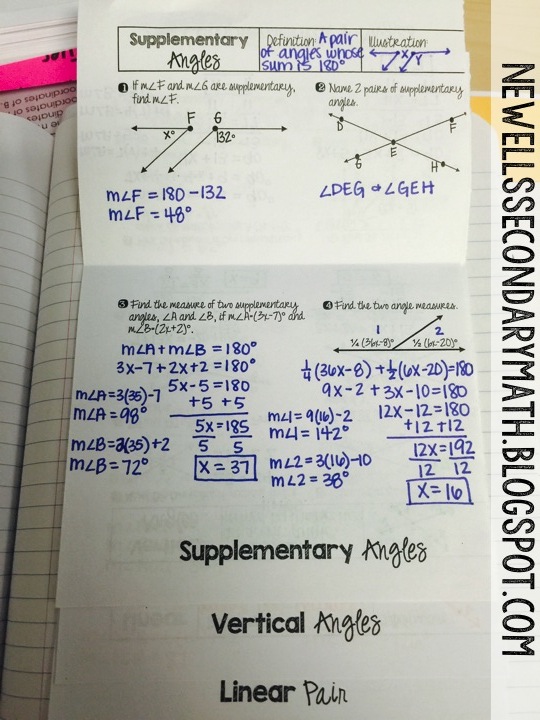 Supplementary
Angles
Definition: A pair
of angles whose
sum is 180°
Illustration:
x Y
❶ If m∠F and m∠G are supplementary,
find m∠F.
F G
x° 132°
m∠F = 180 - 132
m∠F = 48°
❷ Name 2 pairs of supplementary
angles.
D
F
E
G
H
∠DEG & ∠GEH
❸ Find the measure of two supplementary
angles, ∠A and ∠B, if m∠A=(3x-7)° and
m∠B=(2x+2)°.
m∠A + m∠B = 180°
3x - 7 + 2x + 2 = 180°
5x - 5 = 180
+5 +5
5x = 185
5 5
x = 37
m∠A = 3(35) - 7
m∠A = 98°
m∠B = 2(35) + 2
m∠B = 72°
❹ Find the two angle measures.
1 2
¼ (36x-8)° ½ (6x-20)°
¼(36x-8) + ½(6x-20)=180
9x - 2 + 3x - 10 = 180
12x - 12 = 180
+12 +12
12x = 192
12 12
x = 16
m∠1 = 9(16) - 2
m∠1 = 142°
m∠2 = 3(16) - 10
m∠2 = 38°
Supplementary Angles
Vertical Angles
Linear Pair
NEWELLSSECONDARYMATH.BLOGSPOT.COM